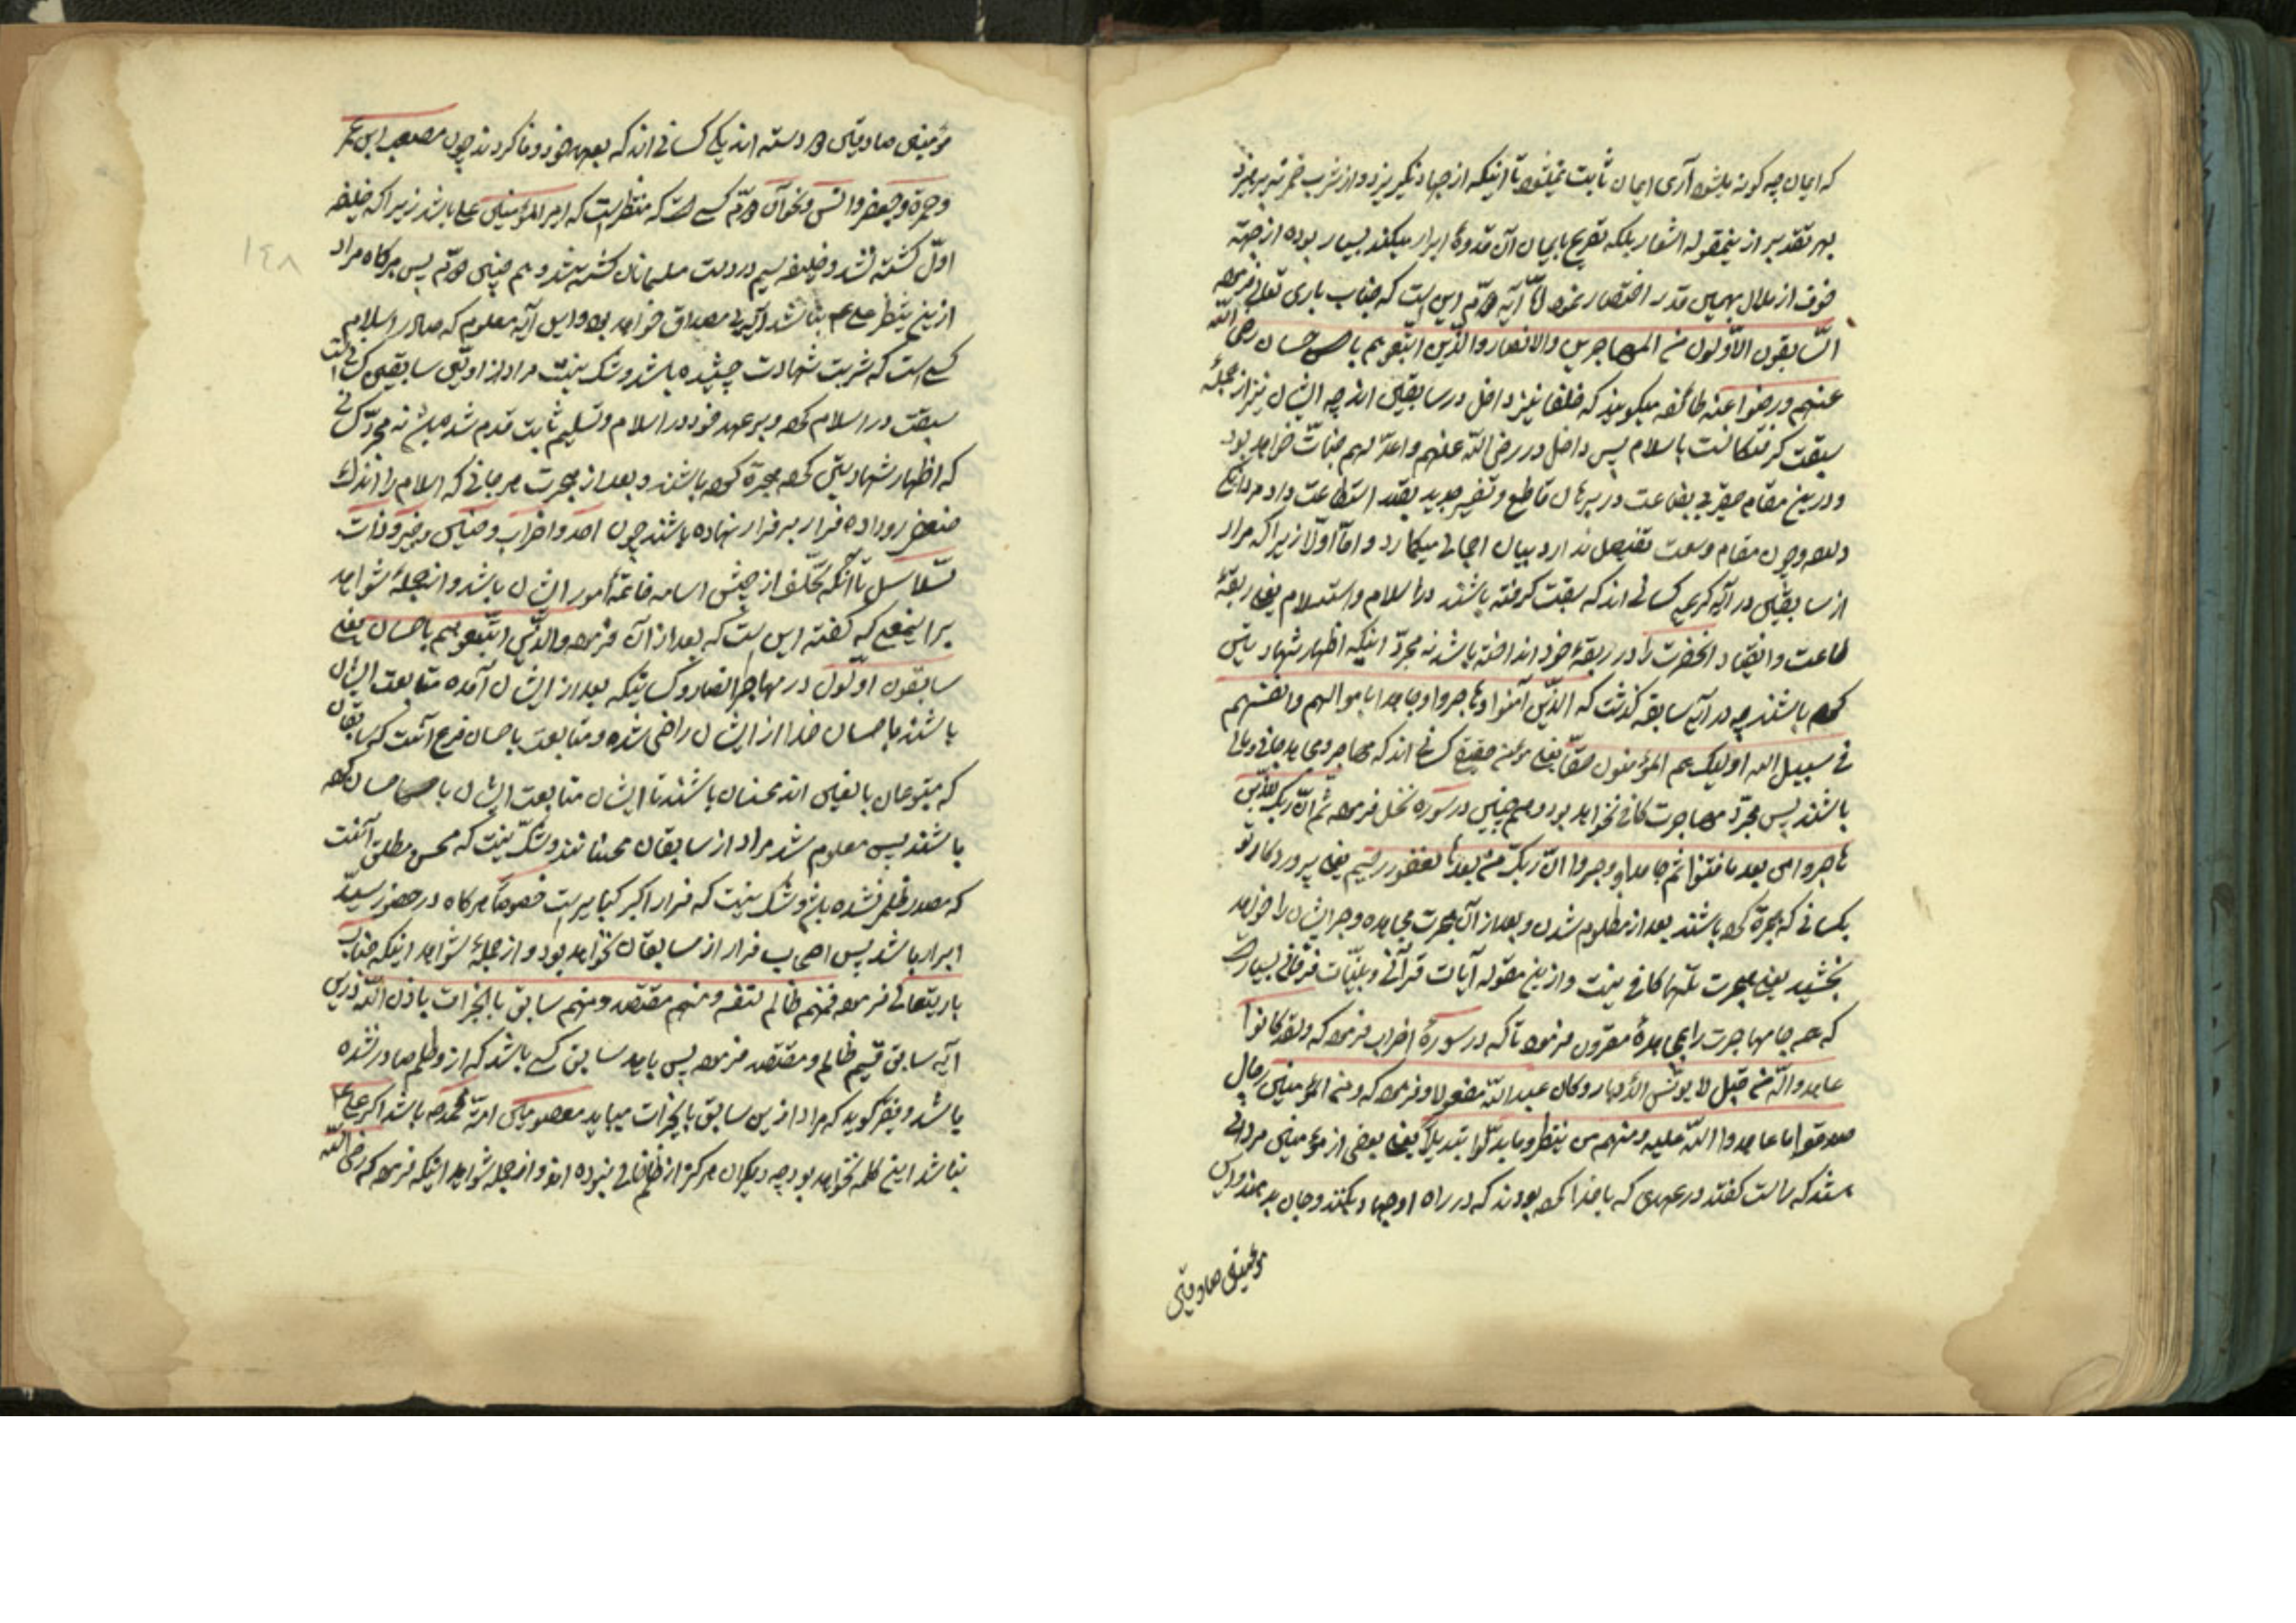 که ایمان چه کونه باشد آری ایمان ثابت نمیشود تا اینکه از جهاد نگریزد و از شرب خمر نپرهیزد
بهر تقدیر ازینمقوله اشعار بلکه تصریح بایمان آن قدوهٔ ابرار میکند بسیار بوده از جهة
خوف از ملال بهمین قدر اختصار نمود امّا آیه دوّم این است که جناب باری تعالی فرموده
السّابقون الاوّلون من المهاجرین والانصار والذّین اتبّعوهم باحسان رضی اللّه
عنهم ورضوا عنه طائفه میکویند که خلفا نیز داخل در سابقین اند چه ایشان نیز از جملهٔ
سبقت کرفتکانست باسلام پس داخل در رضی اللّه عنهم واعدّ لهم جنات خواهد بود
ودرین مقام حقیر بی بضاعت در برهان قاطع و تفسیر جدید بقدر استطاعت داد مردانکی
داده و چون مقام وسعت تفصیل ندارد ببیان اجمالی میکمارد و امّا اولا زیرا که مراد
از سابقین در آیه کریمه کسانی اند که سبقت کرفته باشند در اسلام و استسلام یعنی ربقهٔ
طاعت و انقیاد انحضرت را در رقبهٔ خود انداخته باشد نه مجرّد اینکه اظهار شهادتین
کرده باشند چه در آیه سابقه کذشت که الذّین آمنوا وهاجروا وجاهدوا باموالهم وانفسهم
فی سبیل الله اولیک هم المؤمنون حقّا یعنی مؤمن حقیقی کسانی اند که مهاجر و مجاهد جانی و مالی
باشند پس مجرّد مهاجرت کافی نخواهد بود و هم چنین در سوره نحل فرموده ثم انّ ربک للذّین
هاجروا من بعد ما فتنوا ثم جاهدوا وصبروا انّ ربک من بعدها لغفور رحیم یعنی پروردکار تو
بکسانی که هجرة کرده باشند بعد از مظلوم شدن و بعد از آن هجرت مجاهده وصبر ایشان را خواهد
بخشید یعنی هجرت تنها کافی نیست و ازین مقوله آیات قرآنی و بیّنات فرقانی بسیار است
که همه جا مهاجرت را بمجاهدهٔ مقرون فرموده تا که در سورهٔ احزاب فرموده که ولقد کانوا
عاهدوا اللّه من قبل لا یولّون الأدبار وکان عهد اللّه مسئولا و فرموده که ومن المؤمنین رجال
صدقوا ما عاهدوا اللّه علیه ومنهم من ینتظر وما بدّلوا تبدیلاً یعنی بعضی از مؤمنین مردانی
هستند که راست کفتند در عهدی که با خدا کرده بودند که در راه او جهاد بکنند و جان بدهند و این
مؤمنین صادقین
مؤمنین صادقین دو دسته اند یکی کسانی اند که بعهد خود وفا کردند چون مصعب ابن عمیر
وحمزه وجعفر وانس ونحو آن دوّم کسی است که منتظر است که امیرالمؤمنین علی باشد زیرا که خلیفه
اوّل کشته نشد و خلیفه سیم در دست مسلمانان کشته شد و هم چنین دوّم پس هرکاه مراد
ازین ینتظر علی ع نباشد آیه بی مصداق خواهد بود و این آیه معلوم که صادر اسلام
کسی است که شربت شهادت چشیده باشد و شک نیست مراد از اوّلین سابقین کسانی است
سبقت در اسلام کرده و بر عهد خود در اسلام و تسلیم ثابت قدم شده باشد نه مجرّد کسانی
که اظهار شهادتین کرده هجرة کرده باشند و بعد از هجرت هر جائی که اسلام را اندک
ضعفی رو داده فرار بر قرار نهاده باشند چون احد و احزاب و حنین و خیبر و ذات
سلاسل تا آنکه تخلّف از جیش اسامه خاتمهٔ امور ایشان باشد و از جملهٔ شواهد
براینمعنی که کفته این است که بعد از آن فرموده والذّین اتبّعوهم باحسان یعنی
سابقون اوّلون در مهاجر و انصار و کسانیکه بعد از ایشان آمده متابعت ایشان
باشند باحسان خدا از ایشان راضی شده و متابعت باحسان فرع آنست که سابقان
که متبوعان بالیقین اند محسنان باشند تا ایشان متابعت ایشان باحسان کرده
باشند پس معلوم شد مراد از سابقان محسنانند و شکّ نیست که محسن مطلق آنست
که مصدر ظلم نشده باشد و شک نیست که فرار اکبر کبایر است خصوصاً هرکاه در حضور سیّد
ابرار باشد پس اصحاب فرار از سابقان نخواهد بود و از جملهٔ شواهد اینکه جناب
باریتعالی فرموده فمنهم ظالم لنفسه ومنهم مقتصد ومنهم سابق بالخیرات باذن اللّه درین
آیه سابق قسیم ظالم و مقتصد فرموده پس باید سابق کسی باشد که ازو ظلم صادر نشده
باشد و نیز کوید که مراد ازین سابق بالخیرات میباید معصومین امّة محمّد ص باشد اکر علی ع
نباشد این کلمه نخواهد بود چه دیکران هرکز از ظلم خالی نبوده اند و از جمله شواهد اینکه فرموده که رضی اللّه
١٤٨